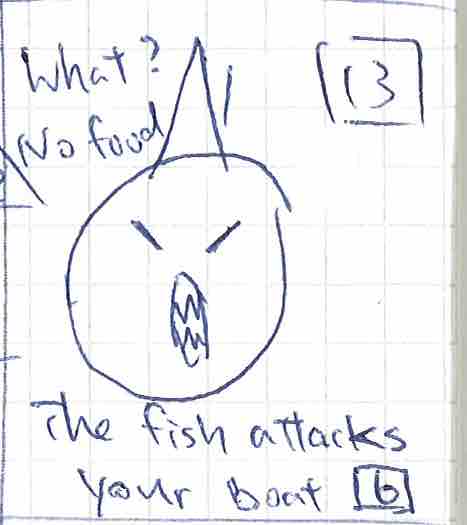 What?
13
No food
The fish attacks
your boat 6